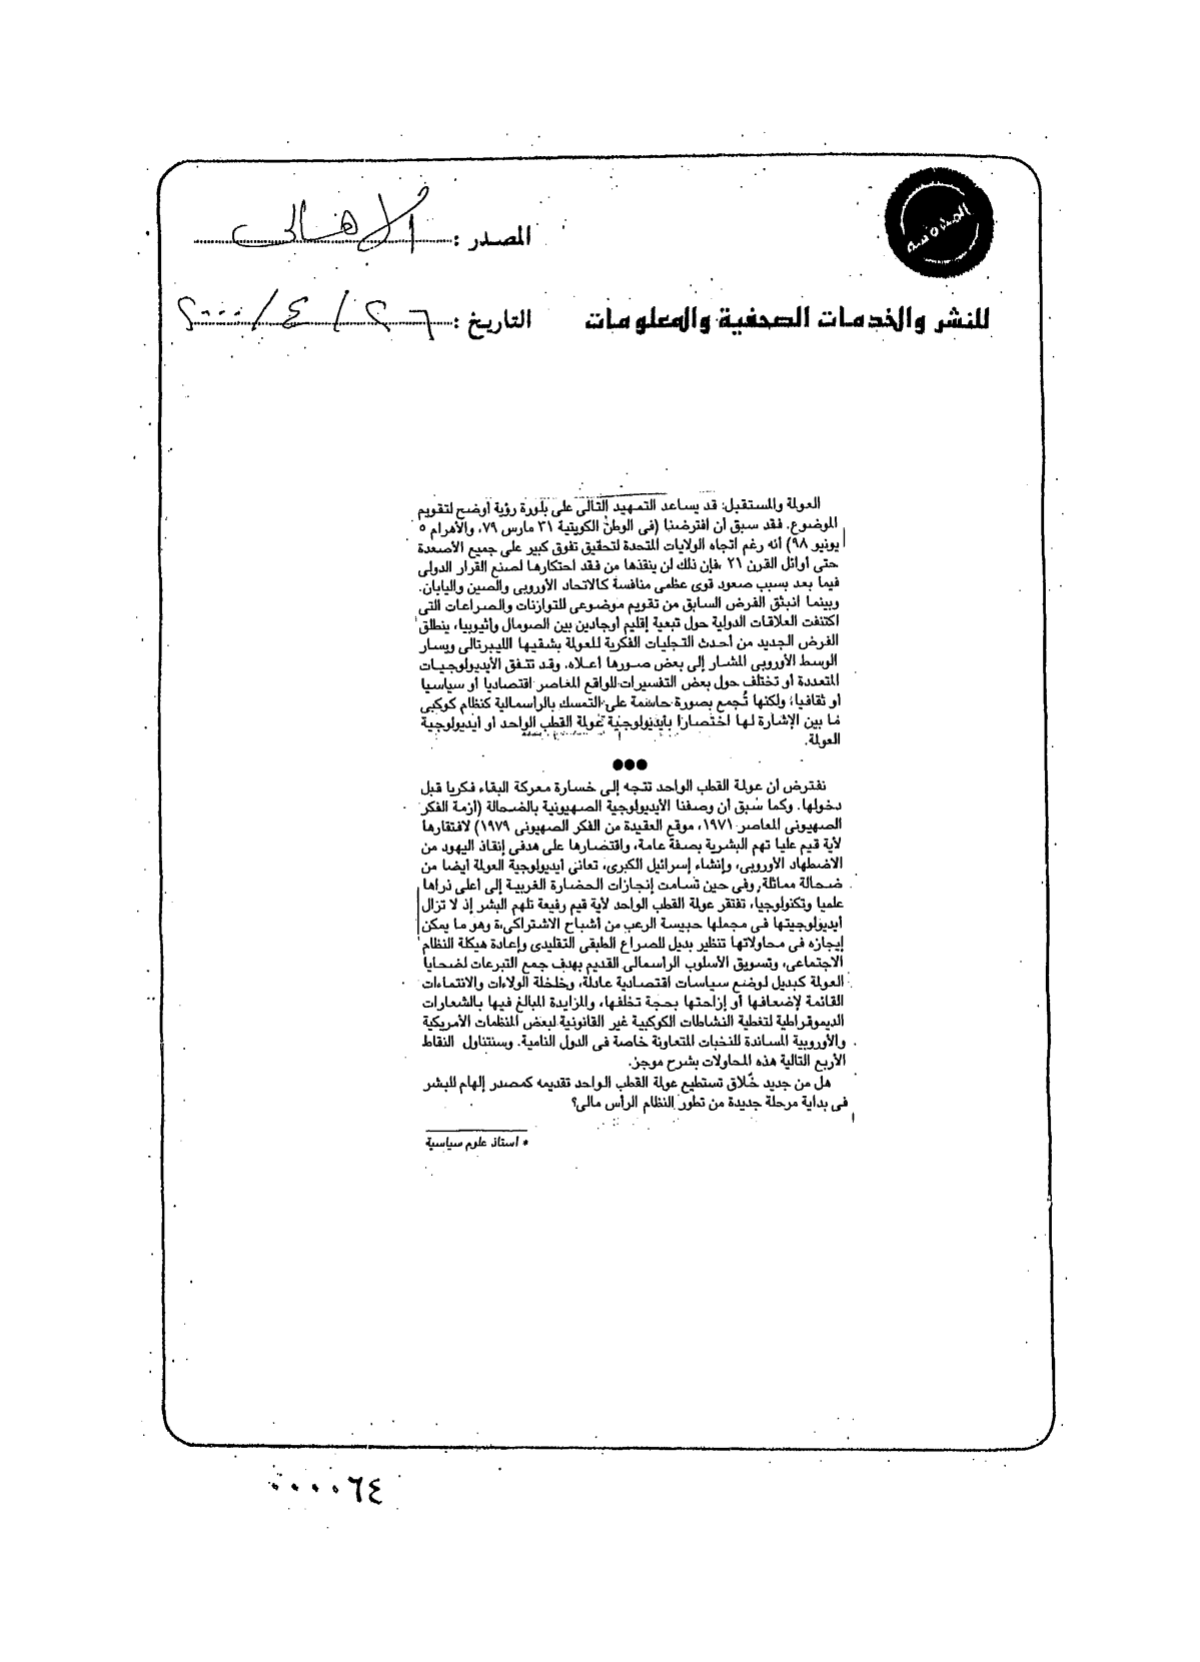 المصدر : الأهالى
للنشر والخدمات الصحفية والمعلومات
التاريخ : ٢٦ / ٤ / ٢٠٠٠
العولة والمستقبل: قد يساعد التمهيد التالى على بلورة رؤية أوضح لتقويم
الموضوع. فقد سبق أن افترضنا (فى الوطن الكويتية ٣١ مارس ٧٩، والأهرام ٥
يونيو ٩٨) أنه رغم اتجاه الولايات المتحدة لتحقيق تفوق كبير على جميع الأصعدة
حتى أوائل القرن ٢١ ،فإن ذلك لن ينقذها من فقد احتكارها لصنع القرار الدولى
فيما بعد بسبب صعود قوى عظمى منافسة كالاتحاد الأوروبى والصين واليابان.
وبينما انبثق الفرض السابق من تقويم موضوعى للتوازنات والصراعات التى
اكتنفت العلاقات الدولية حول تبعية إقليم أوجادين بين الصومال وإثيوبيا، ينطلق
الفرض الجديد من أحدث التجليات الفكرية للعولة بشقيها الليبرتالى ويسار
الوسط الأوروبى المشار إلى بعض صورها أعلاه. وقد تتفق الأيديولوجيات
المتعددة أو تختلف حول بعض التفسيرات للواقع المعاصر اقتصاديا أو سياسيا
أو ثقافيا؛ ولكنها تُجمع بصورة حاسمة على التمسك بالراسمالية كنظام كوكبى
ما بين الإشارة لها اختصارا بأيديولوجية عولة القطب الواحد أو أيديولوجية
العولة.
●●●
نفترض أن عولة القطب الواحد تتجه إلى خسارة معركة البقاء فكريا قبل
دخولها. وكما سبق أن وصفنا الأيديولوجية الصهيونية بالضحالة (أزمة الفكر
الصهيونى المعاصر ١٩٧١، موقع العقيدة من الفكر الصهيونى ١٩٧٩) لافتقارها
لأية قيم عليا تهم البشرية بصفة عامة، واقتصارها على هدفى إنقاذ اليهود من
الاضطهاد الأوروبى، وإنشاء إسرائيل الكبرى، تعانى أيديولوجية العولة أيضا من
ضحالة مماثلة, وفى حين تسامت إنجازات الحضارة الغربية إلى أعلى ذراها
علميا وتكنولوجيا، تفتقر عولة القطب الواحد لأية قيم رفيعة تلهم البشر إذ لا تزال
أيديولوجيتها فى مجملها حبيسة الرعب من أشباح الاشتراكية وهو ما يمكن
إيجازه فى محاولاتها تنظير بديل للصراع الطبقى التقليدى وإعادة هيكلة النظام
الاجتماعى، وتسويق الأسلوب الراسمالى القديم بهدف جمع التبرعات لضحايا
العولة كبديل لوضع سياسات اقتصادية عادلة، وخلخلة الولاءات والانتماءات
القائمة لإضعافها أو إزاحتها بحجة تخلفها، والمزايدة المبالغ فيها بالشعارات
الديموقراطية لتغطية النشاطات الكوكبية غير القانونية لبعض المنظمات الأمريكية
والأوروبية المساندة للنخبات المتعاونة خاصة فى الدول النامية. وسنتناول النقاط
الأربع التالية هذه المحاولات بشرح موجز.
هل من جديد خُلاق تستطيع عولة القطب الواحد تقديمه كمصدر إلهام للبشر
فى بداية مرحلة جديدة من تطور النظام الرأس مالى؟
• أستاذ علوم سياسية
٠٠٠٠٦٤